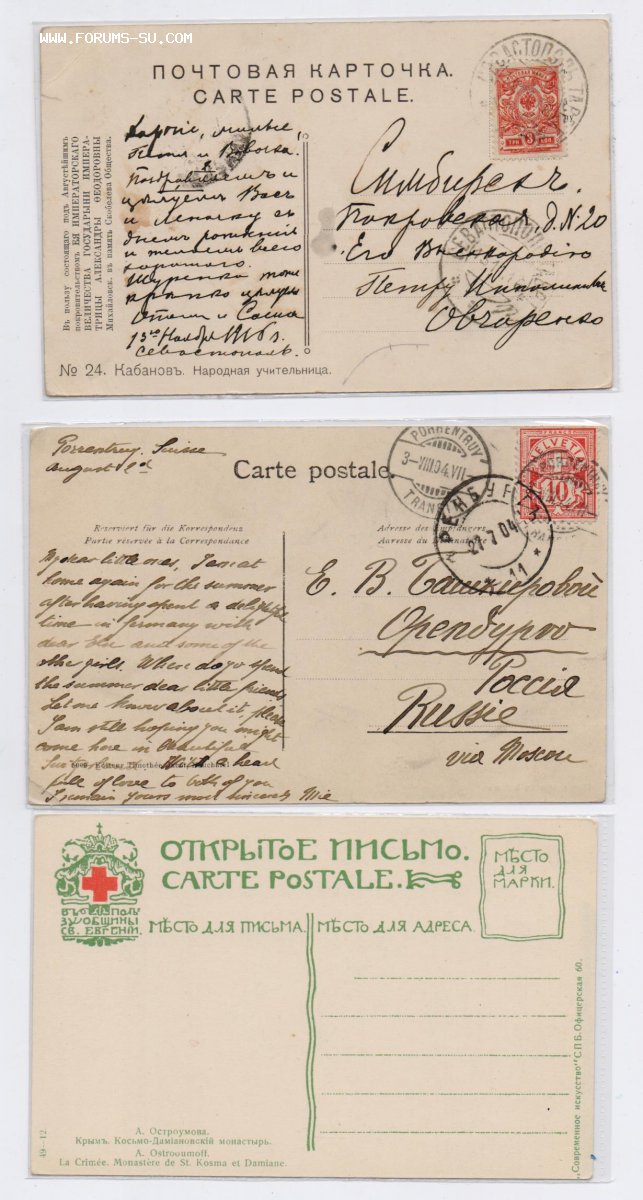 WWW.FORUMS-SU.COM
ПОЧТОВАЯ КАРТОЧКА.
CARTE POSTALE.
Въ пользу состоящаго подъ Августѣйшимъ
покровительствомъ ЕЯ ИМПЕРАТОРСКАГО
ВЕЛИЧЕСТВА ГОСУДАРЫНИ ИМПЕРА-
ТРИЦЫ АЛЕКСАНДРЫ ѲЕОДОРОВНЫ
Михайловск. въ память Скобелева Общества.
милые
Петя и Вовочка.
Поздравляемъ и
цѣлуемъ Васъ
и Леночку съ
днемъ рожденія
и желаемъ всего
хорошаго.
Шуренка тоже
крѣпко цѣлуемъ
и Саша
13го Ноября 1916 г.
Севастополь.
Симбирскъ.
Покровская, д. N. 20
Его Высокородію
Петру
Овчаренко
№ 24. Кабановъ. Народная учительница.
Porrentruy. Suisse
August 2d
Carte postale.
PORRENTRUY
3-VIII.04.VII-
HELVETIA
10
ОРЕНБУРГЪ
27 7 04
11
Reserviert für die Korrespondenz
Partie réservée à la Correspondance
Adresse des Empfängers
Adresse du Destinataire
My dear little ones, I am at
home again for the summer
after having spent a delightful
time in Germany with
dear Else and some of the
other girls. Where do you spend
the summer dear little friends
Let me know about it please
I am still hoping you might
come here in beautiful
With a heart
full of love to both of you
I remain yours most sincerely Mie
Е. В. Башкировой
Оренбургъ
Россія
Russie
via Moscou
ОТКРЫТОЕ ПИСЬМО.
CARTE POSTALE.
МѢСТО
ДЛЯ
МАРКИ.
ВЪ ПОЛЬ
ЗУ ОБЩИНЫ
СВ. ЕВГЕНІИ.
МѢСТО ДЛЯ ПИСЬМА.
МѢСТО ДЛЯ АДРЕСА.
49—12.
А. Остроумова.
Крымъ. Косьмо-Даміановскій монастырь.
A. Ostrooumoff.
La Crimée. Monastère de St. Kosma et Damiane.
"Современное искусство" С.П.Б. Офицерская 60.